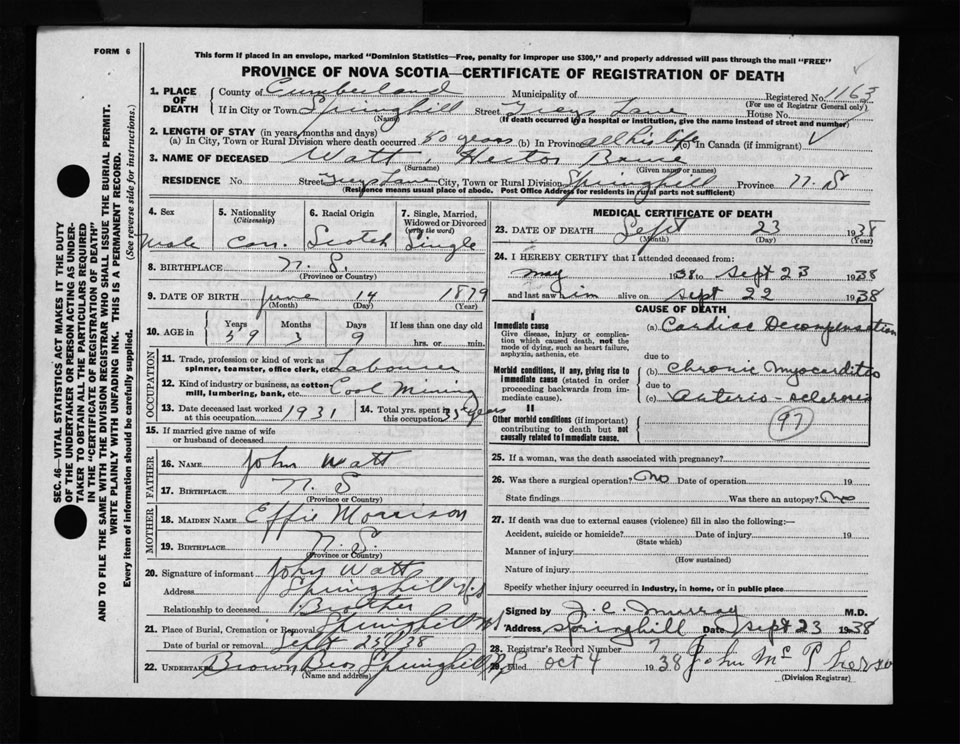 FORM 6
This form if placed in an envelope, marked "Dominion Statistics—Free, penalty for improper use $300," and properly addressed will pass through the mail "FREE"
PROVINCE OF NOVA SCOTIA—CERTIFICATE OF REGISTRATION OF DEATH
SEC. 46—VITAL STATISTICS ACT MAKES IT THE DUTY
OF THE UNDERTAKER OR PERSON ACTING AS UNDER-
TAKER TO OBTAIN ALL THE PARTICULARS REQUIRED
IN THE "CERTIFICATE OF REGISTRATION OF DEATH"
AND TO FILE THE SAME WITH THE DIVISION REGISTRAR WHO SHALL ISSUE THE BURIAL PERMIT.
WRITE PLAINLY WITH UNFADING INK. THIS IS A PERMANENT RECORD.
Every item of information should be carefully supplied. (See reverse side for instructions.)
1. PLACE OF DEATH County of Cumberland Municipality of Registered No. 1163
(For use of Registrar General only)
If in City or Town Springhill Street Lane House No.
(Name) (If death occurred in a hospital or institution, give the name instead of street and number)
2. LENGTH OF STAY (in years, months and days)
(a) In City, Town or Rural Division where death occurred 50 years (b) In Province all his life (c) In Canada (if immigrant)
3. NAME OF DECEASED Watt, Hector
(Surname) (Given name or names)
RESIDENCE No. Street Lane City, Town or Rural Division Springhill Province N. S
(Residence means usual place of abode. Post Office Address for residents in rural parts not sufficient)
4. Sex Male
5. Nationality (Citizenship) Can.
6. Racial Origin Scotch
7. Single, Married, Widowed or Divorced (write the word) Single
8. BIRTHPLACE N. S.
(Province or Country)
9. DATE OF BIRTH June 14 1879
(Month) (Day) (Year)
10. AGE in Years 59 Months 3 Days 9 If less than one day old hrs. or min.
OCCUPATION
11. Trade, profession or kind of work as spinner, teamster, office clerk, etc. Labourer
12. Kind of industry or business, as cotton mill, lumbering, bank, etc. Cool Mining
13. Date deceased last worked at this occupation 1931
14. Total yrs. spent in this occupation 35 years
15. If married give name of wife or husband of deceased
FATHER
16. NAME John Watt
17. BIRTHPLACE N. S
(Province or Country)
MOTHER
18. MAIDEN NAME Effie Morrison
19. BIRTHPLACE N. S.
(Province or Country)
20. Signature of informant John Watt
Address Springhill N.S
Relationship to deceased Brother
21. Place of Burial, Cremation or Removal Springhill
Date of burial or removal Sept 25/38
22. UNDERTAKER Brown Bros Springhill N S
(Name and address)
MEDICAL CERTIFICATE OF DEATH
23. DATE OF DEATH Sept 23 1938
(Month) (Day) (Year)
24. I HEREBY CERTIFY that I attended deceased from:
May 1938 to Sept 23 1938
and last saw him alive on Sept 22 1938
CAUSE OF DEATH
I
Immediate cause (a) Cardiac Decompensation
Give disease, injury or complication which caused death, not the mode of dying, such as heart failure, asphyxia, asthenia, etc
due to
Morbid conditions, if any, giving rise to immediate cause (stated in order proceeding backwards from immediate cause). (b) Chronic Myocarditis
due to
(c) Arterio-sclerosis
97
II
Other morbid conditions (if important) contributing to death but not causally related to immediate cause.
25. If a woman, was the death associated with pregnancy?
26. Was there a surgical operation? No Date of operation 19
State findings Was there an autopsy? No
27. If death was due to external causes (violence) fill in also the following:—
Accident, suicide or homicide? Date of injury 19
(State which)
Manner of injury
(How sustained)
Nature of injury
Specify whether injury occurred in industry, in home, or in public place
Signed by J. C. Murray M.D.
Address Springhill Date Sept 23 1938
28. Registrar's Record Number 7
29. Filed Oct 4 1938 John McPherson
(Division Registrar)